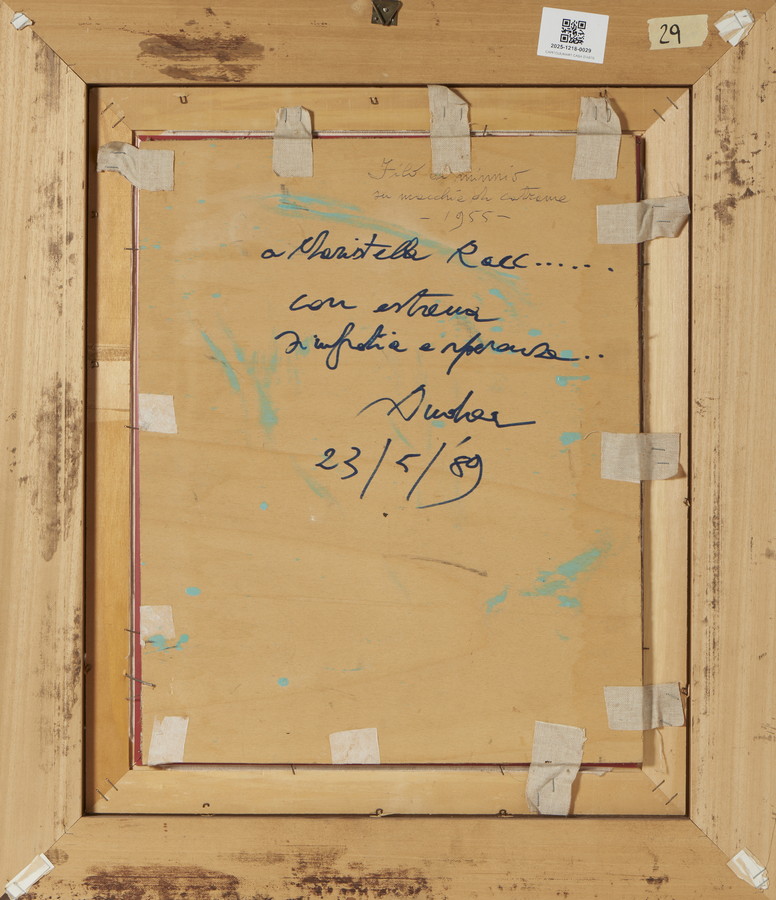 2025-1218-0029
29
su macchie di catrame
- 1955 -
a Maristella Racc......
con estrema
simpatia e speranza..
23/5/'89